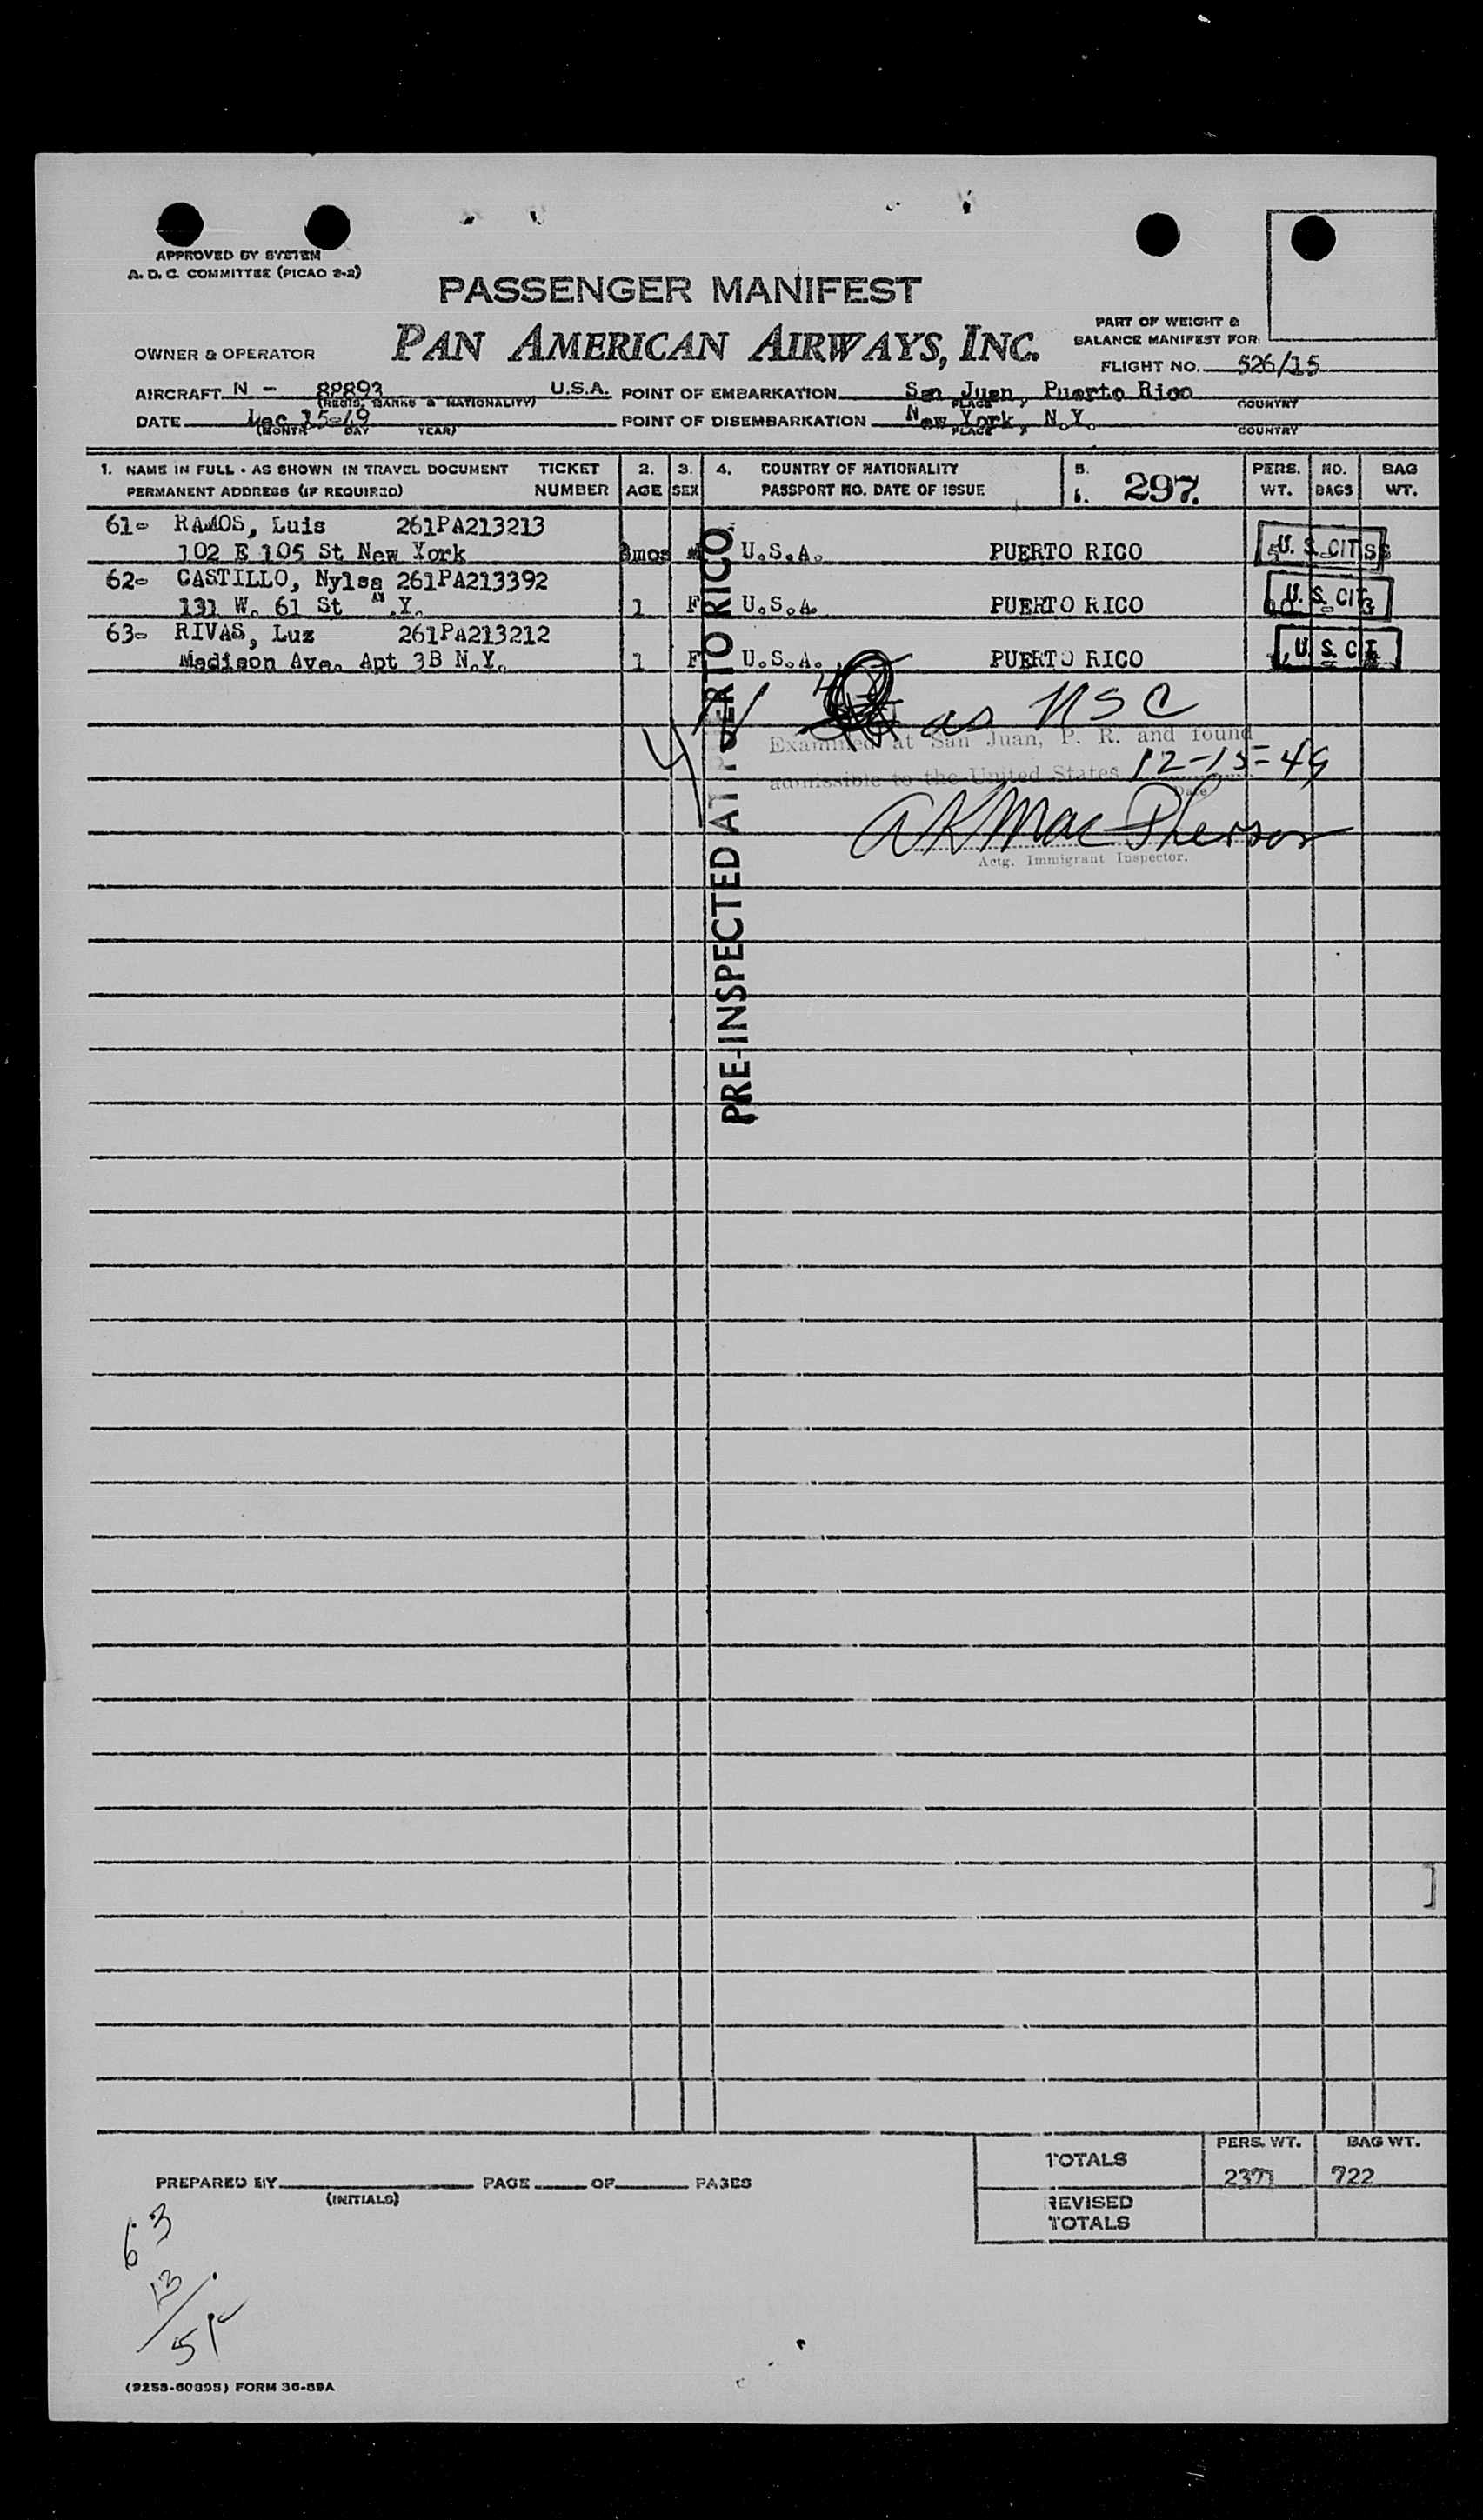 APPROVED BY SYSTEM
A. D. C. COMMITTEE (PICAO 2-2)
PASSENGER MANIFEST
PAN AMERICAN AIRWAYS, INC.
PART OF WEIGHT &
BALANCE MANIFEST FOR:
OWNER & OPERATOR
FLIGHT NO. 526/15
AIRCRAFT N - 88893 U.S.A. POINT OF EMBARKATION San Juan, Puerto Rico
(REGIS. MARKS & NATIONALITY) PLACE COUNTRY
DATE Dec 15-49 POINT OF DISEMBARKATION New York, N.Y.
(MONTH DAY YEAR) PLACE COUNTRY
1. NAME IN FULL - AS SHOWN IN TRAVEL DOCUMENT TICKET 2. 3. 4. COUNTRY OF NATIONALITY 5. 297. PERS. NO. BAG
PERMANENT ADDRESS (IF REQUIRED) NUMBER AGE SEX PASSPORT NO. DATE OF ISSUE 6. WT. BAGS WT.
61- RAMOS, Luis 261PA213213
102 E 105 St New York 8mos M U.S.A. PUERTO RICO U. S. CIT
62- CASTILLO, Nylsa 261PA213392
131 W. 61 St N.Y. 1 F U.S.A. PUERTO RICO U. S. CIT
63- RIVAS, Luz 261PA213212
Madison Ave. Apt 3B N.Y. 1 F U.S.A. PUERTO RICO U. S. CIT
PRE-INSPECTED AT PUERTO RICO
as USC
Examined at San Juan, P. R. and found
admissible to the United States 12-15-49
Date
A K MacPherson
Actg. Immigrant Inspector.
PERS. WT. BAG WT.
TOTALS 722
PREPARED BY PAGE OF PAGES
(INITIALS)
REVISED
TOTALS
63
(9253-60895) FORM 36-89A